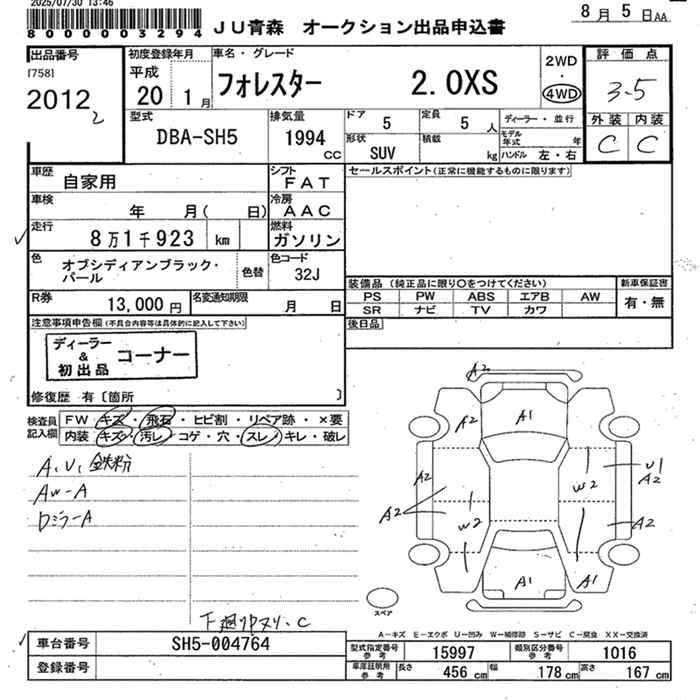 2025/07/30 13:46
8000003294
JU青森 オークション出品申込書
8月 5日AA
出品番号
[758]
2012
2
初度登録年月
平成
20 1月
車名・グレード
フォレスター 2.0XS
2WD
・
4WD
評価点
3.5
外装 内装
C C
型式
DBA-SH5
排気量
1994
CC
ドア 5
定員 5人
形状
SUV
積載
kg
ディーラー・並行
モデル年式 年
ハンドル 左・右
車歴
自家用
シフト
FAT
セールスポイント(正常に機能するものに限ります)
車検
年 月( 日)
冷房
AAC
走行
8万1千923 km
燃料
ガソリン
色
オブシディアンブラック・パール
色替
色コード
32J
装備品 (純正品に限り○をつけてください)
PS PW ABS エアB AW
SR ナビ TV カワ
新車保証書
有・無
R券
13,000 円
名変通知期限
月 日
後日品
注意事項申告欄(不具合内容等は具体的に記入して下さい)
ディーラー
&
初出品
コーナー
修復歴 有〔箇所 〕
検査員記入欄
FW キズ・飛石・ヒビ割・リペア跡・×要
内装 キズ・汚レ・コゲ・穴・スレ・キレ・破レ
A,U,鉄粉
AW-A
Dミラ-A
下廻りサヌリ・C
A2
A1
A2
A2
A2
W2
W2
U1
A2
A2
A1
A1
スペア
A-キズ E-エクボ U-凹み W-補修跡 S-サビ C-腐食 XX-交換済
車台番号
SH5-004764
登録番号
型式指定番号参考 15997
類別区分番号参考 1016
車庫証明用参考 長さ 456 cm 幅 178 cm 高さ 167 cm